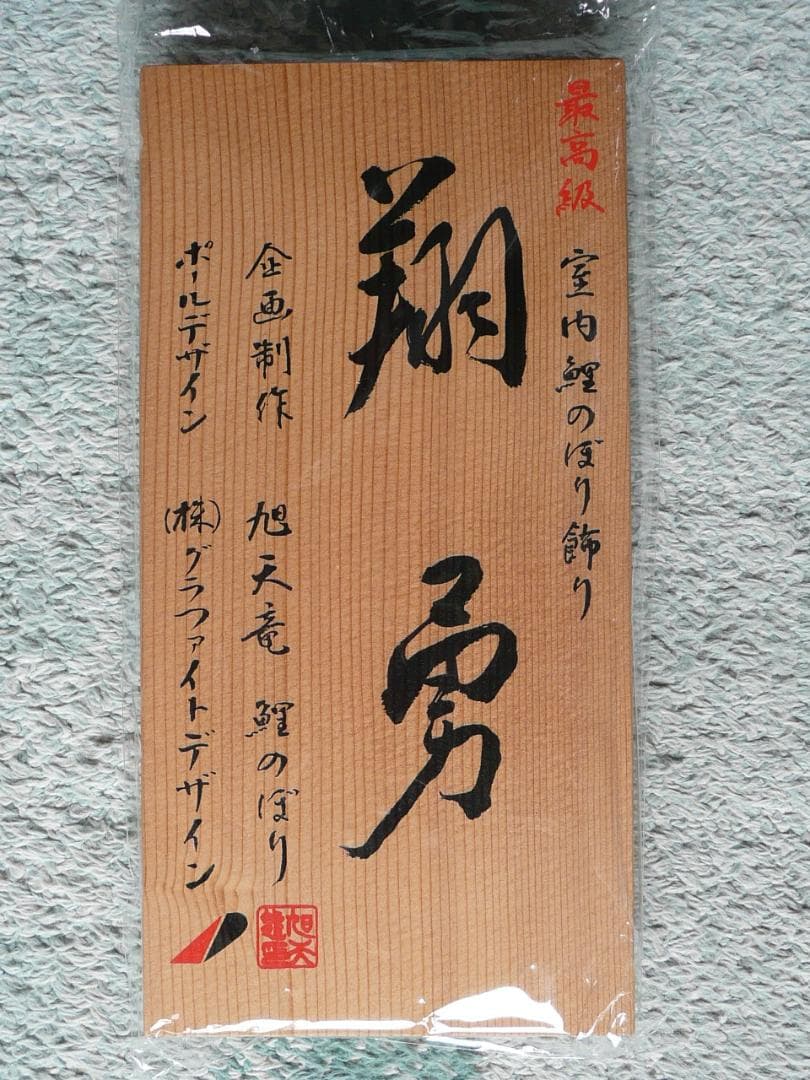 最高級
室内鯉のぼり飾り
翔勇
企画制作 旭天竜 鯉のぼり
ポールデザイン (株)グラファイトデザイン